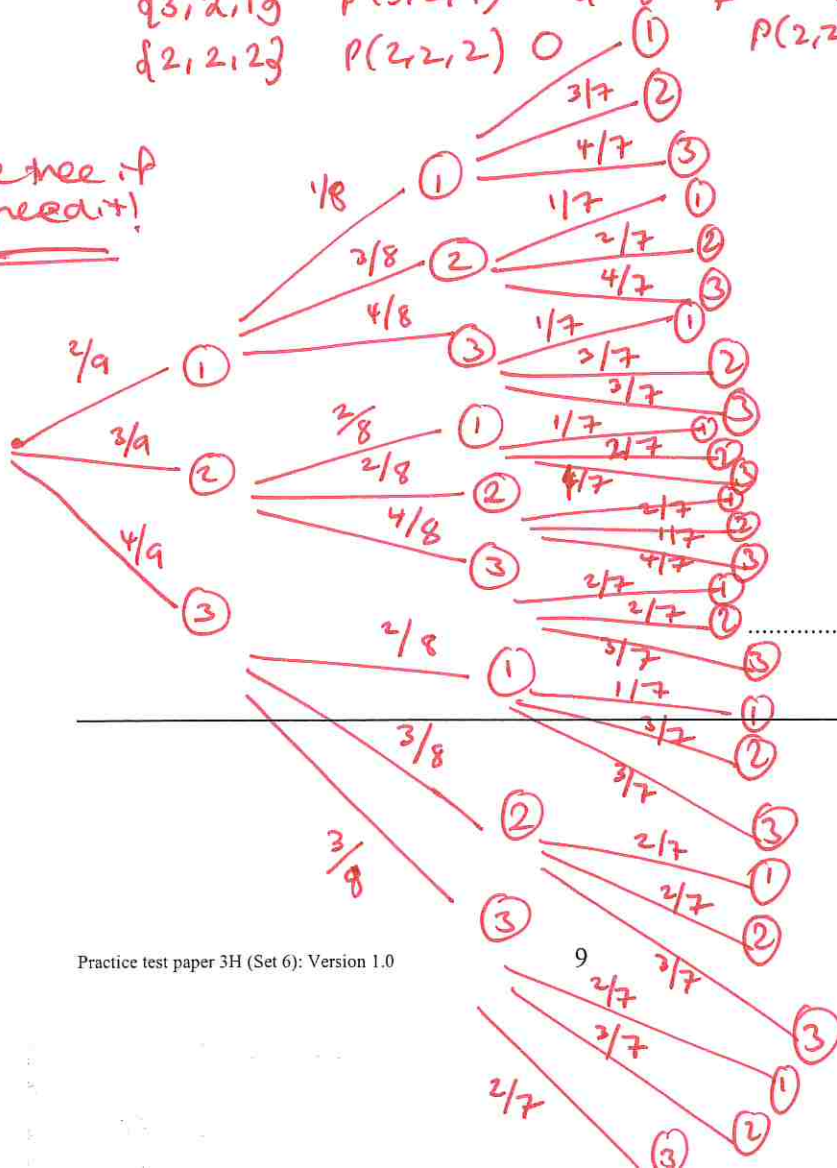 {3,2,1}
{2,2,2} P(2,2,2) 0
P(2,2
tree if
need it!
2/9 1
3/9 2
4/9 3
1/8 1
3/8 2
4/8 3
2/8 1
2/8 2
4/8 3
2/8 1
3/8 2
3/8 3
1
3/7 2
4/7 3
1/7 1
2/7 2
4/7 3
1/7 1
3/7 2
3/7 3
1/7 1
2/7 2
4/7 3
2/7 1
1/7 2
4/7 3
2/7 1
2/7 2 ..............
3/7 3
1/7 1
3/7 2
3/7 3
2/7 1
2/7 2
3/7 3
2/7 1
3/7 2
2/7 3
Practice test paper 3H (Set 6): Version 1.0 9